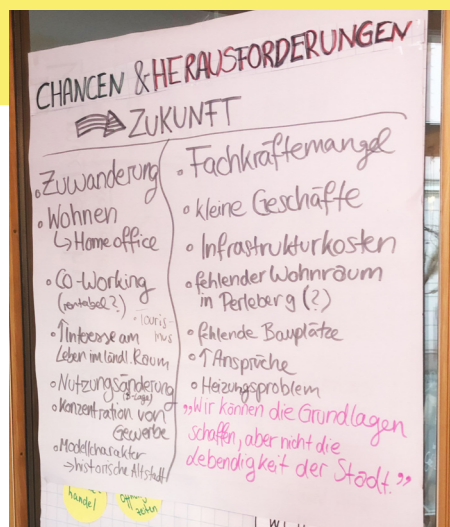 CHANCEN & HERAUSFORDERUNGEN
ZUKUNFT
• Zuwanderung
• Wohnen
↳ Homeoffice
• Co-Working
(rentabel?)
• Touris-
mus
• ↑ Interesse am
Leben im ländl. Raum
• Nutzungsänderung
• Konzentration von
Gewerbe
• Modellcharakter
→ historische Altstadt
• Fachkräftemangel
• kleine Geschäfte
• Infrastrukturkosten
• fehlender Wohnraum
in Perleberg (?)
• fehlende Bauplätze
• ↑ Ansprüche
• Heizungsproblem
„Wir können die Grundlagen
schaffen, aber nicht die
Lebendigkeit der Stadt.”
handel
zeiten